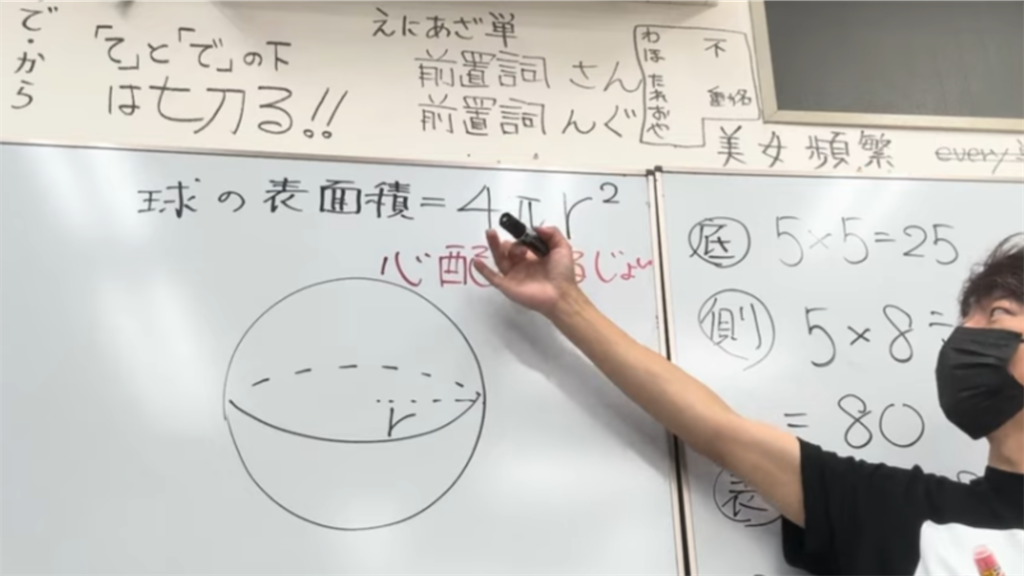 で・から
「て」と「で」の下
は七刀る!!
えにあざ単
前置詞 さん
前置詞 んぐ
わほ
たれ
おや
不
動名
美女頻繁
every
球の表面積=4πr²
心配 るじょー
r
底 5×5=25
側 5×8=
=80
表